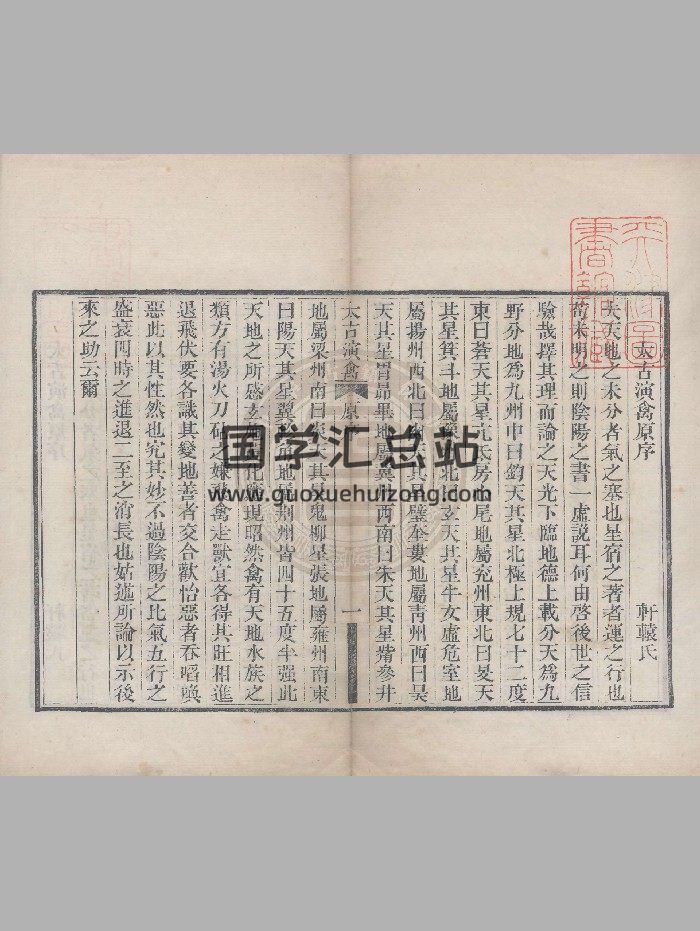 太古演禽原序
軒轅氏
夫天地之未分者氣之塞也星宿之著者運之行也
苟未明之則陰陽之書一虛說耳何由啓後世之信
驗哉擇其理而論之天光下臨地德上載分天爲九
野分地爲九州中曰鈞天其星北極上規七十二度
東曰蒼天其星亢氐房心尾地屬兖州東北曰旻天
其星箕斗地屬 北 玄天其星牛女虛危室地
屬揚州西北曰幽天其星壁奎婁地屬靑州西曰昊
天其星胃昴畢地屬冀州西南曰朱天其星觜參井
太古演禽
原序
一
地屬梁州南曰炎天其星鬼柳星張地屬雍州南東
曰陽天其星翼軫角地屬荆州皆四十五度半强此
天地之所 化 現昭然禽有天地水族之
類方有湯火刀砧之嫌 禽走獸宜各得其旺相進
退飛伏要各識其變地善者交合歡怡惡者吞啗
惡此以其性然也究其妙不過陰陽之比氣五行之
盛衰四時之進退二至之消長也姑述所論以示後
來之助云爾
国学汇总站
www.guoxuehuizong.com